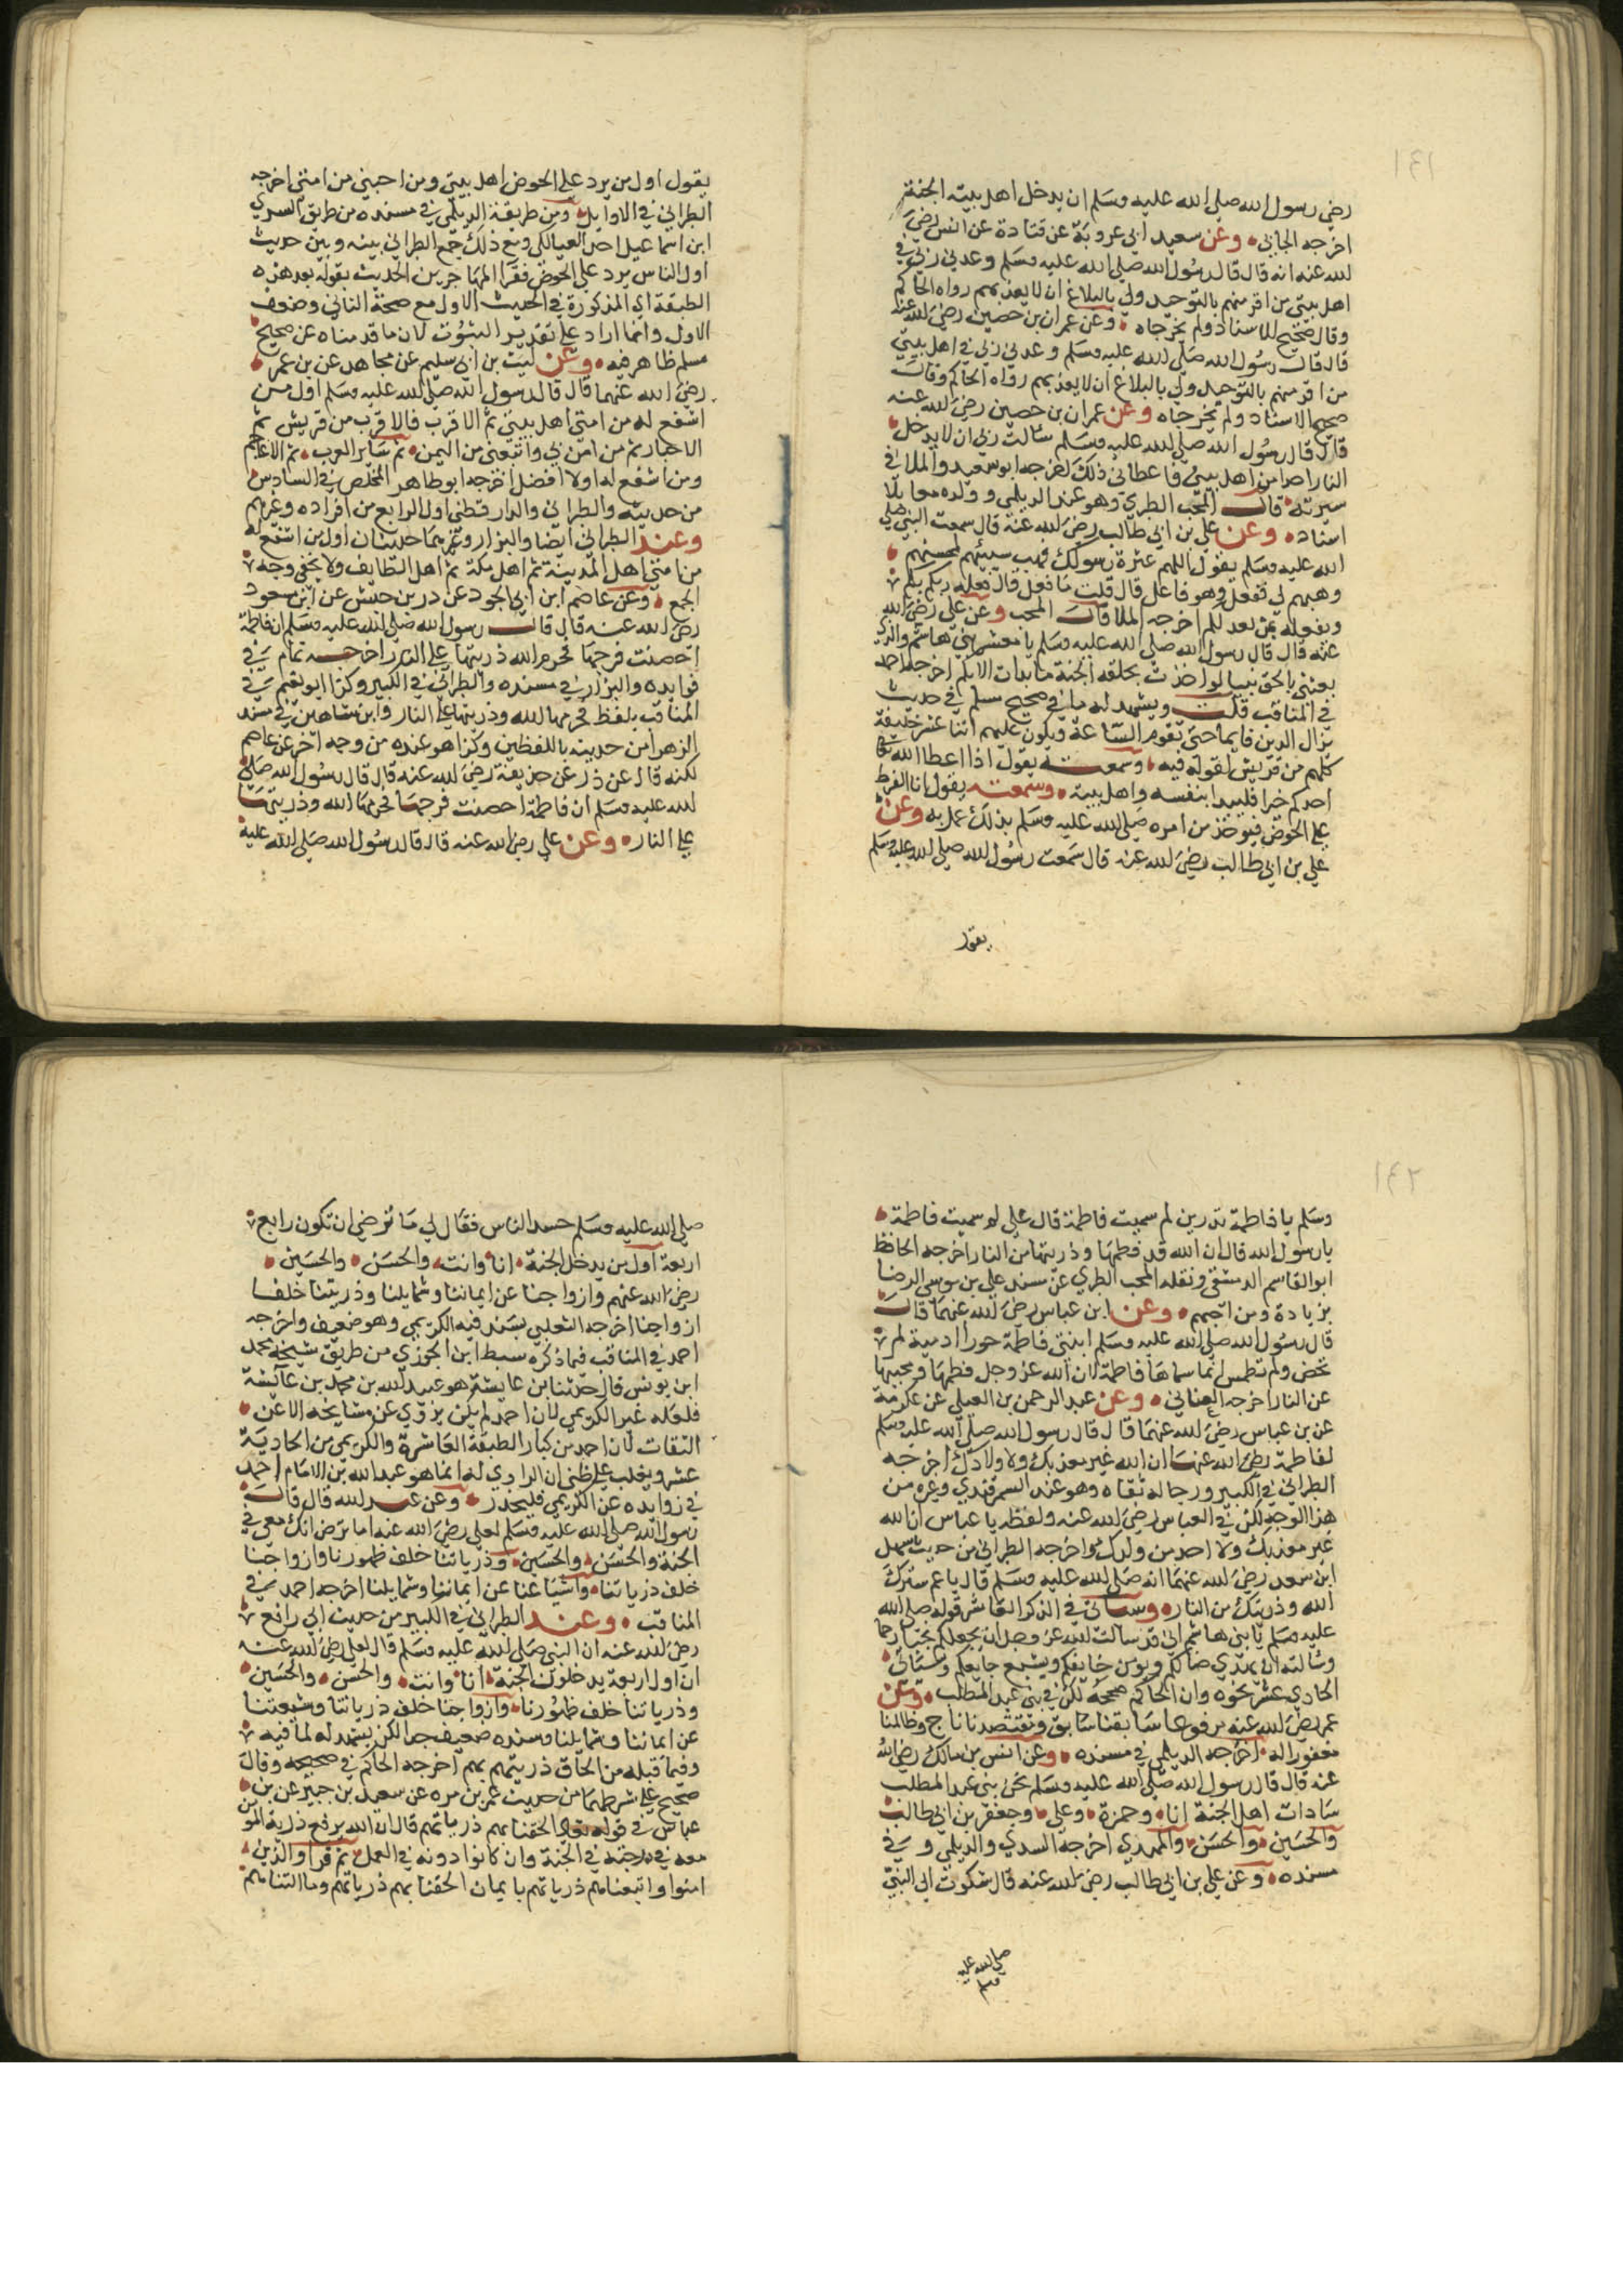 ١٤١
رضي رسول الله صلى الله عليه وسلم ان يدخل اهل بيته الجنة
اخرجه الجابي وعن سعيد ابي عروبة عن قتادة عن انس رضي
لله عنه انه قال قال رسول الله صلى الله عليه وسلم وعدني ربي في
اهل بيتي من اقر منهم بالتوحيد ولي بالبلاغ ان لا يعذبهم رواه الحاكم
وقال صحيح للاسناد ولم يخرجاه وعن عمران بن حصين رضي لله عنه
قال قال رسول الله صلى الله عليه وسلم وعدني ربي في اهل بيتي
من اقر منهم بالتوحيد ولي بالبلاغ ان لا يعذبهم رواه الحاكم وقال
صحيح الاسناد ولم يخرجاه وعن عمران بن حصين رضي الله عنه
قال قال رسول الله صلى لله عليه وسلم سالت ربي ان لا يدخل
النار احدا من اهل بيتي فاعطاني ذلك اخرجه ابو سعيد والملا في
سيرته قال المحب الطبري وهو عند الديلمي وولده معا بلا
اسناد وعن علي بن ابي طالب رضي لله عنه قال سمعت النبي صلى
الله عليه وسلم يقول اللهم عترة رسولك فهب مسيئهم لمحسنهم
وهبهم لي ففعل وهو فاعل قال قلت ما فعل قال فعله ربكم بكم
ويفعله بمن بعدكم اخرجه الملا قال المحب وعن علي رضي الله
عنه قال قال رسول الله صلى لله عليه وسلم يا معشر بني هاشم والذي
بعثني بالحق نبيا لو اخذت بحلقة الجنة ما بدات الا بكم اخرجه احمد
في المناقب قلت ويشهد له ما في صحيح مسلم في حديث
يزال الدين قايما حتى تقوم الساعة ويكون عليهم اثنا عشر خليفة
كلهم من قريش لقوله فيه وسمعته يقول اذا اعطا الله
احدكم خيرا فليبدا بنفسه واهل بيته وسمعته يقول انا الفرط
على الحوض فيوخذ من امره صلى الله عليه وسلم بذلك عمل به وعن
علي بن ابي طالب رضي لله عنه قال سمعت رسول لله صلى لله عليه وسلم
يقول
يقول اول من يرد علي الحوض اهل بيتي ومن احبني من امتي اخرجه
الطبراني في الاوايل ومن طريقة الديلمي في مسنده من طريق السدي
ابن اسماعيل احد العيالكي ومع ذلك جمع الطبراني بينه وبين حديث
اول الناس يرد علي الحوض فقرا المهاجرين الحديث بقوله بعد هذه
الطبقة اي المذكورة في الحديث الاول مع صحة الثاني وضعف
الاول وانما اراد على تقدير الثبوت لان ما قدمناه عن صحيح
مسلم ظاهر فيه وعن ليث بن ابي سليم عن مجاهد عن بن عمر
رضي الله عنهما قال قال رسول الله صلى لله عليه وسلم اول من
اشفع له من امتي اهل بيتي ثم الاقرب فالاقرب من قريش ثم
الاحبار ثم من امن بي واتبعني من اليمن ثم ساير العرب ثم الاعاجم
ومن اشفع له اولا افضل اخرجه ابو طاهر المخلص في السادس
من حديثه والطبراني والدارقطني اول الرابع من افراده وغيرهم
وعند الطبراني ايضا والبزار وغيرهما حديثان اول من اشفع له
من امتي اهل المدينة ثم اهل مكة ثم اهل الطايف ولا يخفى وجه
الجمع وعن عاصم ابن ابي النجود عن در بن حبيش عن ابن مسعود
رضي لله عنه قال قال رسول الله صلى لله عليه وسلم ان فاطمة
احصنت فرجها فحرم الله ذريتها على النار اخرجه تمام في
فوايده والبزار في مسنده والطبراني في الكبير وكذا ابو نعيم في
المناقب بلفظ فحرمها لله وذريتها على النار وابن شاهين في مسند
الزهرا من حديثه باللفظين وكذا هو عنده من وجه اخر عن عاصم
لكنه قال عن ذر عن حذيفة رضي لله عنه قال قال رسول الله صلى
لله عليه وسلم ان فاطمة احصنت فرجها فحرمها الله وذريتها
على النار وعن علي رضي الله عنه قال قال رسول لله صلى الله عليه
١٤٢
وسلم يا فاطمة تدرين لم سميت فاطمة قال علي لم سميت فاطمة
يا رسول الله قال ان الله قد فطمها وذريتها من النار اخرجه الحافظ
ابو القاسم الدمشقي ونقله المحب الطبري عن مسند علي بن موسى الرضا
بزيادة ومن احبهم وعن ابن عباس رضي لله عنهما قال
قال رسول الله صلى الله عليه وسلم ابنتي فاطمة حورا ادمية لم
تحض ولم تطمس انما سماها فاطمة لان الله عز وجل فطمها ومحبيها
عن النار اخرجه الغساني وعن عبد الرحمن بن الغسيلي عن عكرمة
عن بن عباس رضي لله عنهما قال قال رسول الله صلى الله عليه وسلم
لفاطمة رضي الله عنها ان الله غير معذبك ولا ولادك اخرجه
الطبراني في الكبير ورجاله ثقاه وهو عند السمرقندي وغيره من
هذا الوجه لكن في العباس رضي لله عنه ولفظه يا عباس ان الله
غير معذبك ولا احد من ولدك واخرجه الطبراني من حديث سهل
ابن سعد رضي لله عنهما انه صلى لله عليه وسلم قال يا عم سترك
الله وذريتك من النار وسياتي في الذكر العاشر قوله صلى الله
عليه وسلم يا بني هاشم اني قد سالت لله عز وجل ان يجعلكم نجبا رحما
وسالته ان يهدي ضالكم ويومن خايفكم ويشبع جايعكم وستاتي
الحادي عشر نحوه وان الحاكم صححه لكن في بني عبد المطلب وعن
عمر رضي لله عنه مرفوعا سابقنا سابق ومقتصدنا ناج وظالمنا
مغفور له اخرجه الديلمي في مسنده وعن انس بن مالك رضي الله
عنه قال قال رسول الله صلى الله عليه وسلم نحن بني عبد المطلب
سادات اهل الجنة انا وحمزة وعلي وجعفر بن ابي طالب
والحسين والحسن والمهدي اخرجه السدي والديلمي و في
مسنده وعن علي بن ابي طالب رضي لله عنه قال شكوت الى النبي
صلى لله عليه وسلم
صلى الله عليه وسلم حسد الناس فقال لي ما ترضى ان تكون رابع
اربعة اول من يدخل الجنة انا وانت والحسن والحسين
رضي الله عنهم وازواجنا عن ايماننا وشمايلنا وذريتنا خلف
ازواجنا اخرجه الثعلبي بسند فيه الكريمي وهو ضعيف واخرجه
احمد في المناقب فيما ذكره سبط ابن الجوزي من طريق شيخه محمد
ابن يونس قال حدثنا بن عايشة هو عبيد لله بن محمد بن عائشة
فلعله غير الكريمي لان احمد لم يكن يروي عن مشايخه الا عن
الثقات لان احمد من كبار الطبقة العاشرة والكريمي من الحادية
عشر ويغلب على ظني ان الراوي له انما هو عبد الله بن الامام احمد
في زوايده عن الكريمي فليحذر وعن عبد لله قال قال
رسول الله صلى الله عليه وسلم لعلي رضي الله عنه اما ترض انك معي في
الجنة والحسن والحسين وذرياتنا خلف ظهورنا وازواجنا
خلف ذرياتنا واشياعنا عن ايماننا وشمايلنا اخرجه احمد في
المناقب وعند الطبراني في الكبير من حديث ابي رافع
رضي لله عنه ان النبي صلى لله عليه وسلم قال لعلي رضي لله عنه
ان اول اربعة يدخلون الجنة انا وانت والحسن والحسين
وذرياتنا خلف ظهورنا وازواجنا خلف ذرياتنا وشيعتنا
عن ايماننا وشمايلنا وسنده ضعيف جدا لكن يشهد له لما فيه
وفيما قبله من الحاق ذريتهم بهم اخرجه الحاكم في صحيحه وقال
صحيح على شرطهما من حديث عمر بن مره عن سعيد بن جبير عن بن
عباس في قوله الحقنا بهم ذرياتهم قال ان الله يرفع ذرية المومن
معه في درجته في الجنة وان كانوا دونه في العمل ثم قرا والذين
امنوا واتبعناهم ذرياتهم بايمان الحقنا بهم ذرياتهم وما التناهم